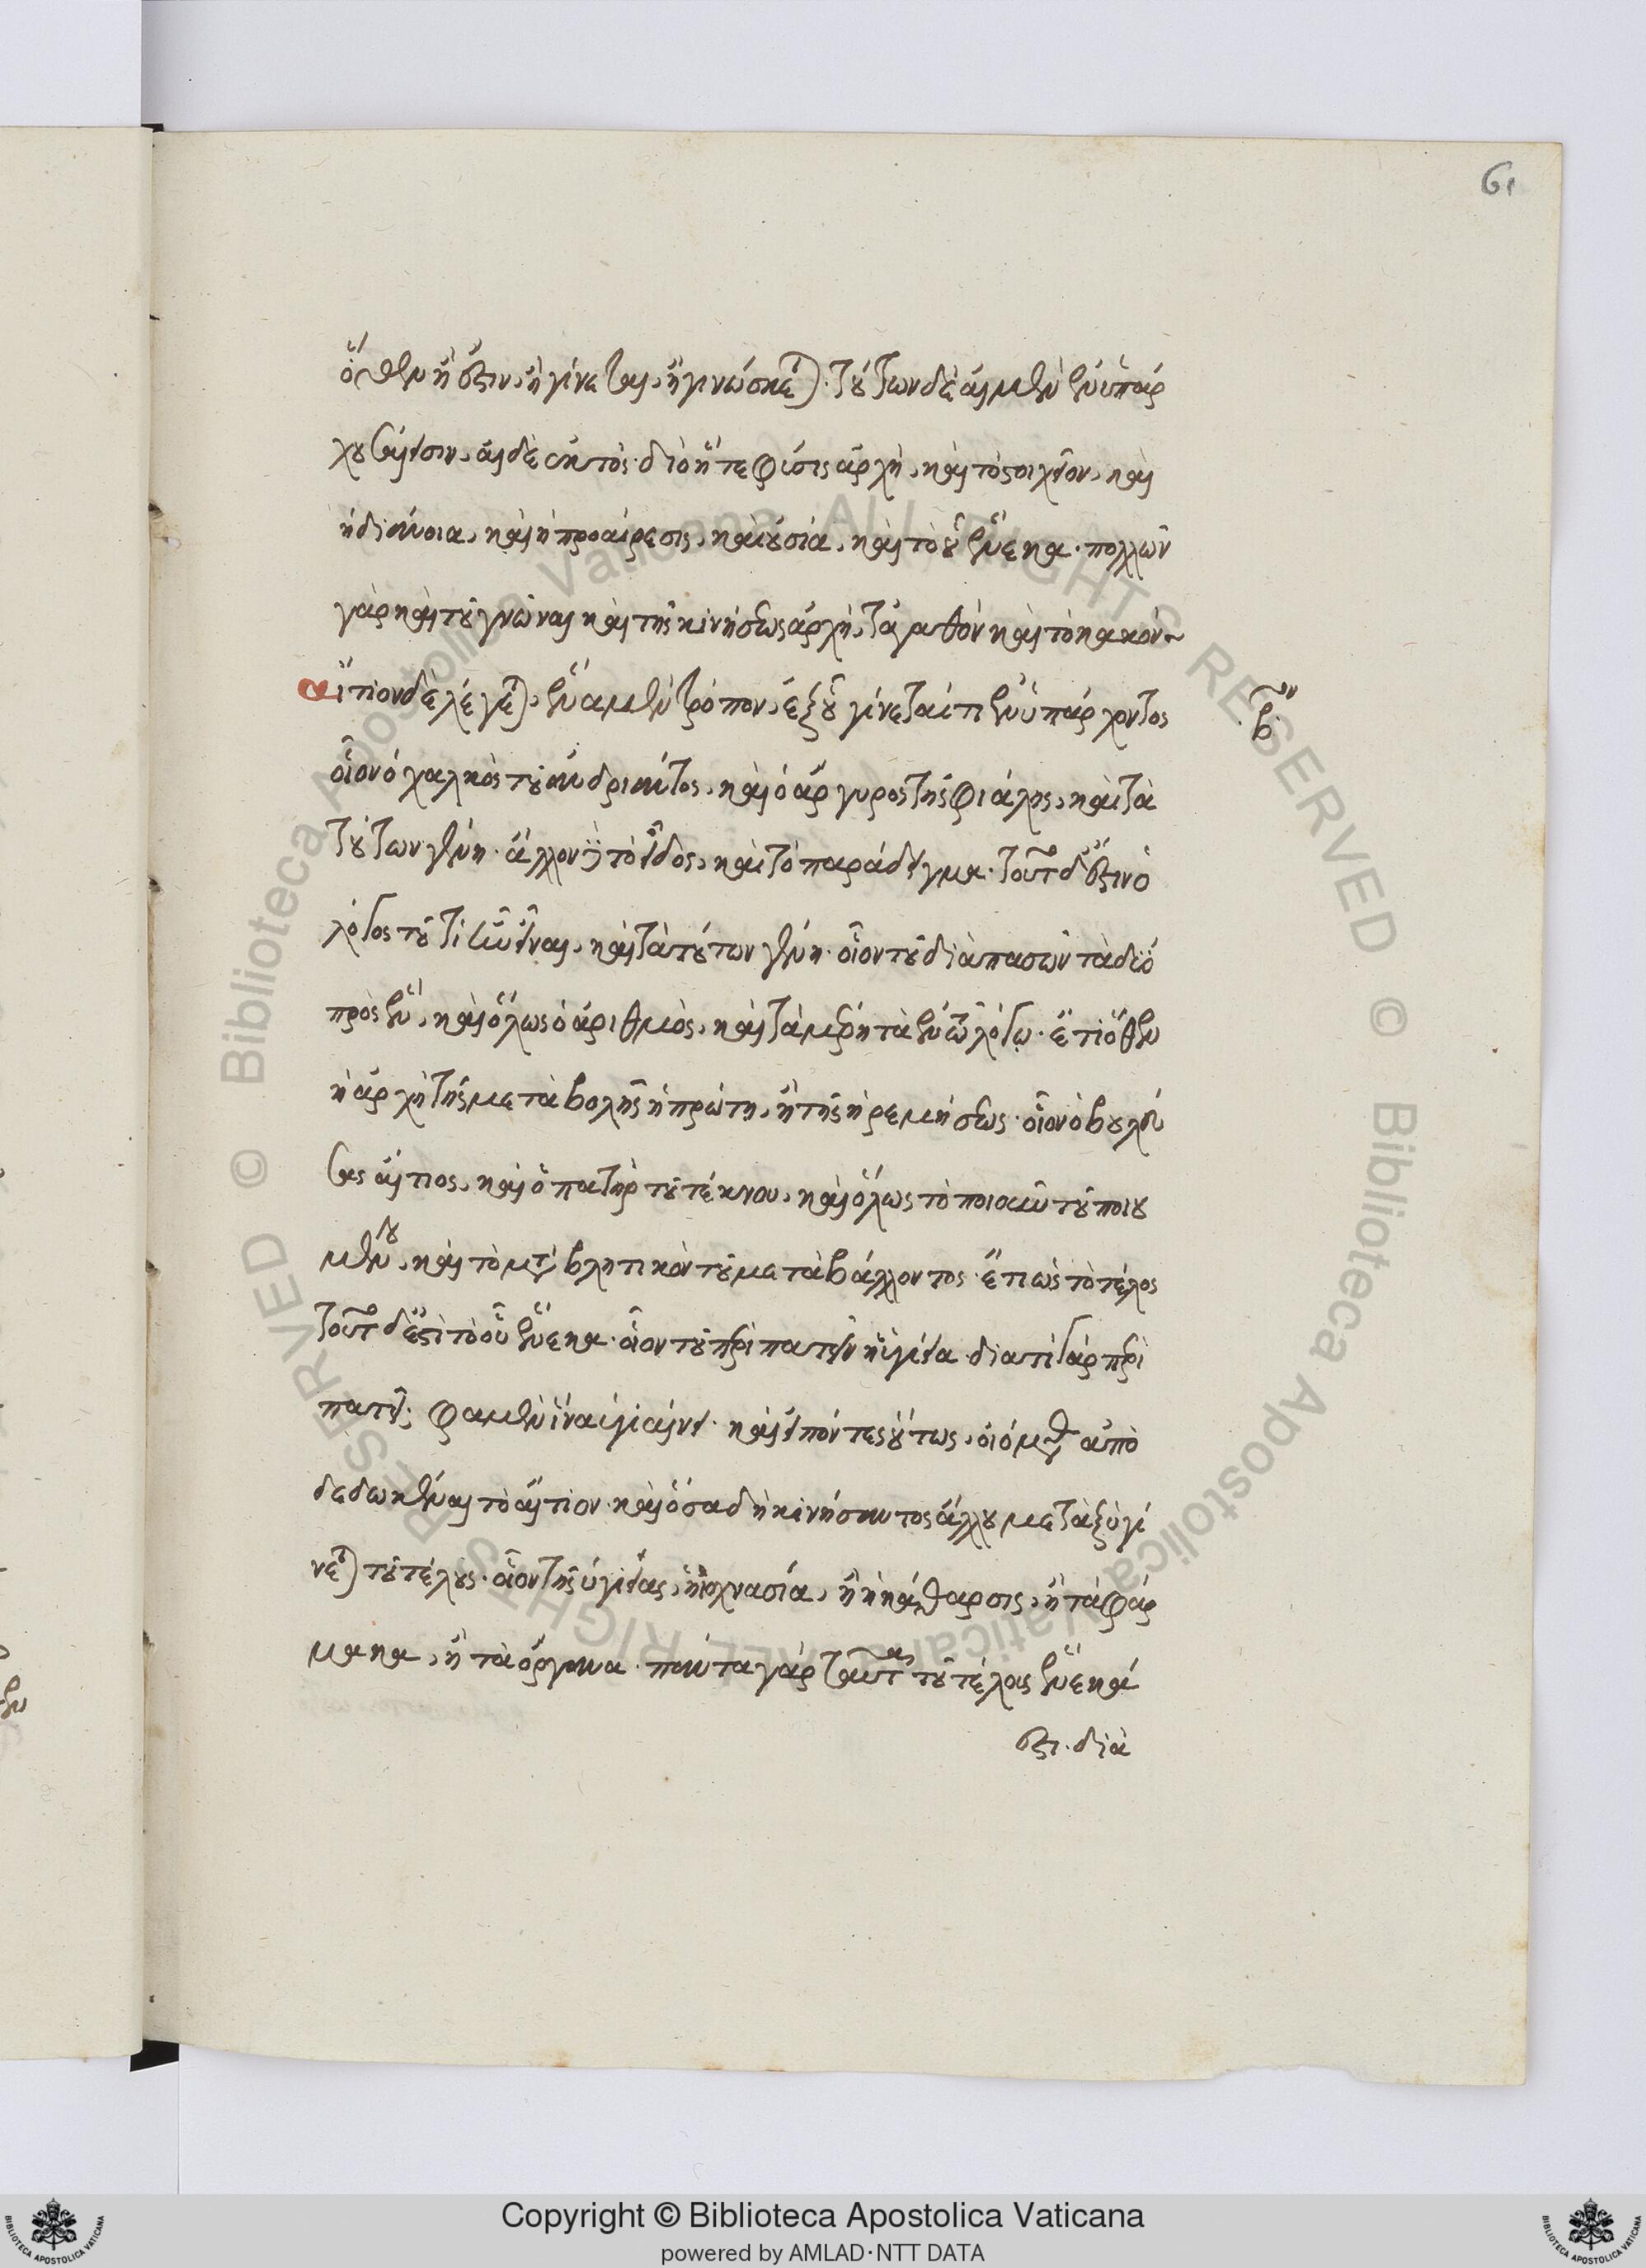 61
ὅθεν ἢ ἔστιν, ἢ γίνεται, ἢ γινώσκεται. τούτων δὲ αἱ μὲν ἐνυπάρ
χουσαί εἰσιν, αἱ δὲ ἐκτός. διὸ ἥ τε φύσις ἀρχὴ, καὶ τὸ στοιχεῖον, καὶ
ἡ διάνοια, καὶ ἡ προαίρεσις, καὶ οὐσία, καὶ τὸ οὗ ἕνεκα. πολλῶν
γὰρ καὶ τοῦ γνῶναι καὶ τῆς κινήσεως ἀρχὴ, τἀγαθὸν καὶ τὸ κακόν~
αἴτιον δὲ λέγεται, ἕνα μὲν τρόπον, ἐξ οὗ γίνεταί τι ἐνυπάρχοντος
.β.ον
οἷον ὁ χαλκὸς τοῦ ἀνδριάντος, καὶ ὁ ἄργυρος τῆς φιάλης, καὶ τὰ
τούτων γένη. ἄλλον δὲ τὸ εἶδος, καὶ τὸ παράδειγμα. τοῦτο δ' ἔστιν ὁ
λόγος τοῦ τί ἦν εἶναι, καὶ τὰ τούτων γένη. οἷον τοῦ διὰ πασῶν τὰ δύο
πρὸς ἕν, καὶ ὅλως ὁ ἀριθμὸς, καὶ τὰ μέρη τὰ ἐν τῷ λόγῳ. ἔτι ὅθεν
ἡ ἀρχὴ τῆς μεταβολῆς ἡ πρώτη, ἢ τῆς ἠρεμήσεως. οἷον ὁ βουλεύ
σας αἴτιος, καὶ ὁ πατὴρ τοῦ τέκνου, καὶ ὅλως τὸ ποιοῦν τοῦ ποιου
μένου, καὶ τὸ μεταβλητικὸν τοῦ μεταβάλλοντος. ἔτι ὡς τὸ τέλος
τοῦτο δ' ἐστὶ τὸ οὗ ἕνεκα. οἷον τοῦ περιπατεῖν ἡ ὑγίεια. διατί γὰρ περι
πατεῖ; φαμὲν ἵνα ὑγιαίνει. καὶ εἰπόντες οὕτως, οἰόμεθα ἀπο
δεδωκέναι τὸ αἴτιον. καὶ ὅσα δὴ κινήσαντος ἄλλου μεταξὺ γί
νεται τοῦ τέλους. οἷον τῆς ὑγιείας, ἡ ἰσχνασία, ἢ ἡ κάθαρσις, ἢ τὰ φάρ
μακα, ἢ τὰ ὄργανα. πάντα γὰρ ταῦτα τοῦ τέλους ἕνεκά
ἐστι. διὰ
Copyright © Biblioteca Apostolica Vaticana
powered by AMLAD·NTT DATA